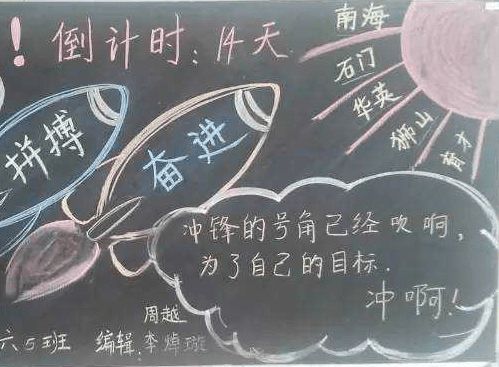 ！倒计时：14天
南海
石门
华英
狮山
育才
拼搏
奋进
冲锋的号角已经吹响，
为了自己的目标.
冲啊！
周越
六5班 编辑：李焯璇